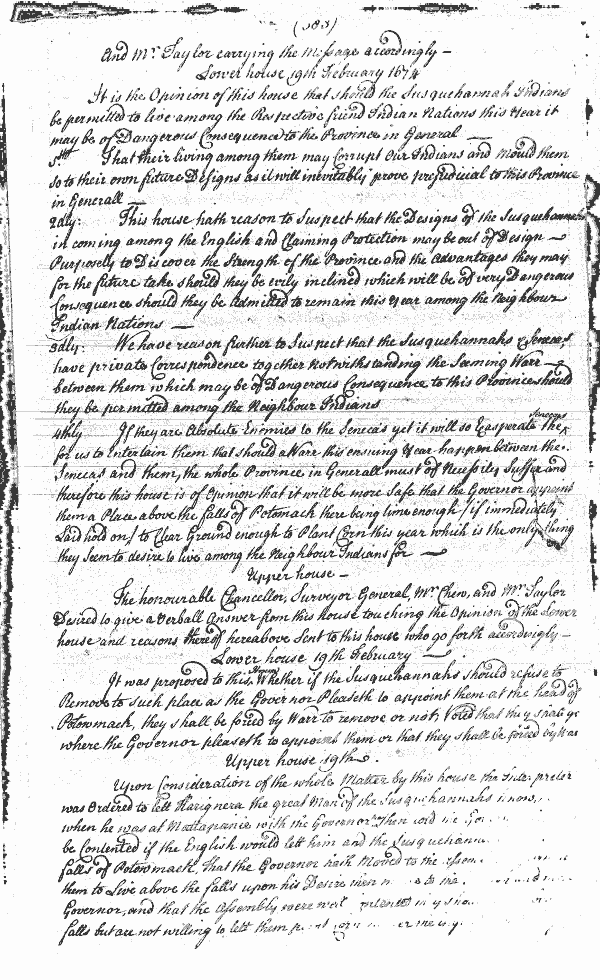 (383)
And Mr. Taylor carrying the Message accordingly —
Lower house 19th February 1674
It is the Opinion of this house that should the Susquehannah Indians
be permitted to live among the Respective friend Indian Nations this Year it
may be of Dangerous Consequence to the Province in General —
That their living among them may Corrupt Our Indians and Mould them
so to their own future Designs as it will inevitably prove prejudicial to this Province
in Generall —
2dly: This house hath reason to Suspect that the Designs of the Susquehannas
in coming among the English and Claiming Protection may be out of Design —
Purposely to Discover the Strength of the Province and the Advantages they may
for the future take should they be evily inclined which will be of very Dangerous
Consequence should they be Admitted to remain this Year among the Neighbour
Indian Nations —
3dly: We have reason further to Suspect that the Susquehannahs & Senecas
have private Correspondence together Notwithstanding the Seeming Warr —
between them which may be of Dangerous Consequence to this Province should
they be permitted among the Neighbour Indians
4thly If they are Absolute Enemies to the Seneca's yet it will so Exasperate the Senecas
for us to Entertain them that should a Warr this ensuing Year happen between the
Senecas and them, the whole Province in Generall must of Necessity Suffer and
therefore this house is of Opinion that it will be more Safe that the Governor appoint
them a Place above the falls of Potomack there being time enough (if immediately
Laid hold on) to Clear Ground enough to Plant Corn this year which is the only thing
they Seem to desire to live among the Neighbour Indians for —
Upper house —
The honourable Chancellor, Surveyor General, Mr. Chew, and Mr. Taylor
Desired to give a Verball Answer from this house touching the Opinion of the Lower
house and reasons thereof hereabove Sent to this house who go forth accordingly —
Lower house 19th February —
It was proposed to this house Whether if the Susquehannahs should refuse to
Remove to such place as the Governor Pleaseth to appoint them at the head of
Potowmack, they shall be forced by Warr to remove or not, Voted that they shall go
where the Governor pleaseth to appoint them or that they shall be forced by War
Upper house 19th.
Upon Consideration of the whole Matter by this house the
was Ordered to tell Harignera the great Man of the Susquehannahs
when he was at Mattapanie with the Governor Then
be Contented if the English would lett him and the Susquehanna
falls of Potowmack, That the Governor hath Moved to the
them to Live above the falls upon his Desire then to the
Governor, and that the Assembly were
falls but are not willing to lett them